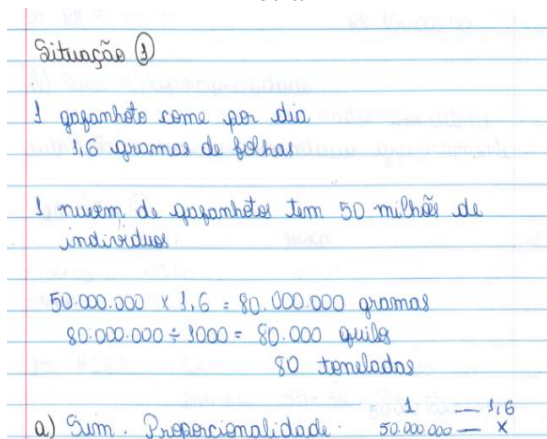 Situação ①
1 gafanhoto come por dia
1,6 gramas de folhas
1 nuvem de gafanhotos tem 50 milhões de
indivíduos
50.000.000 x 1,6 = 80.000.000 gramas
80.000.000 ÷ 1000 = 80.000 quilos
80 toneladas
a) Sim. Proporcionalidade. 1 — 1,6
50.000.000 — x